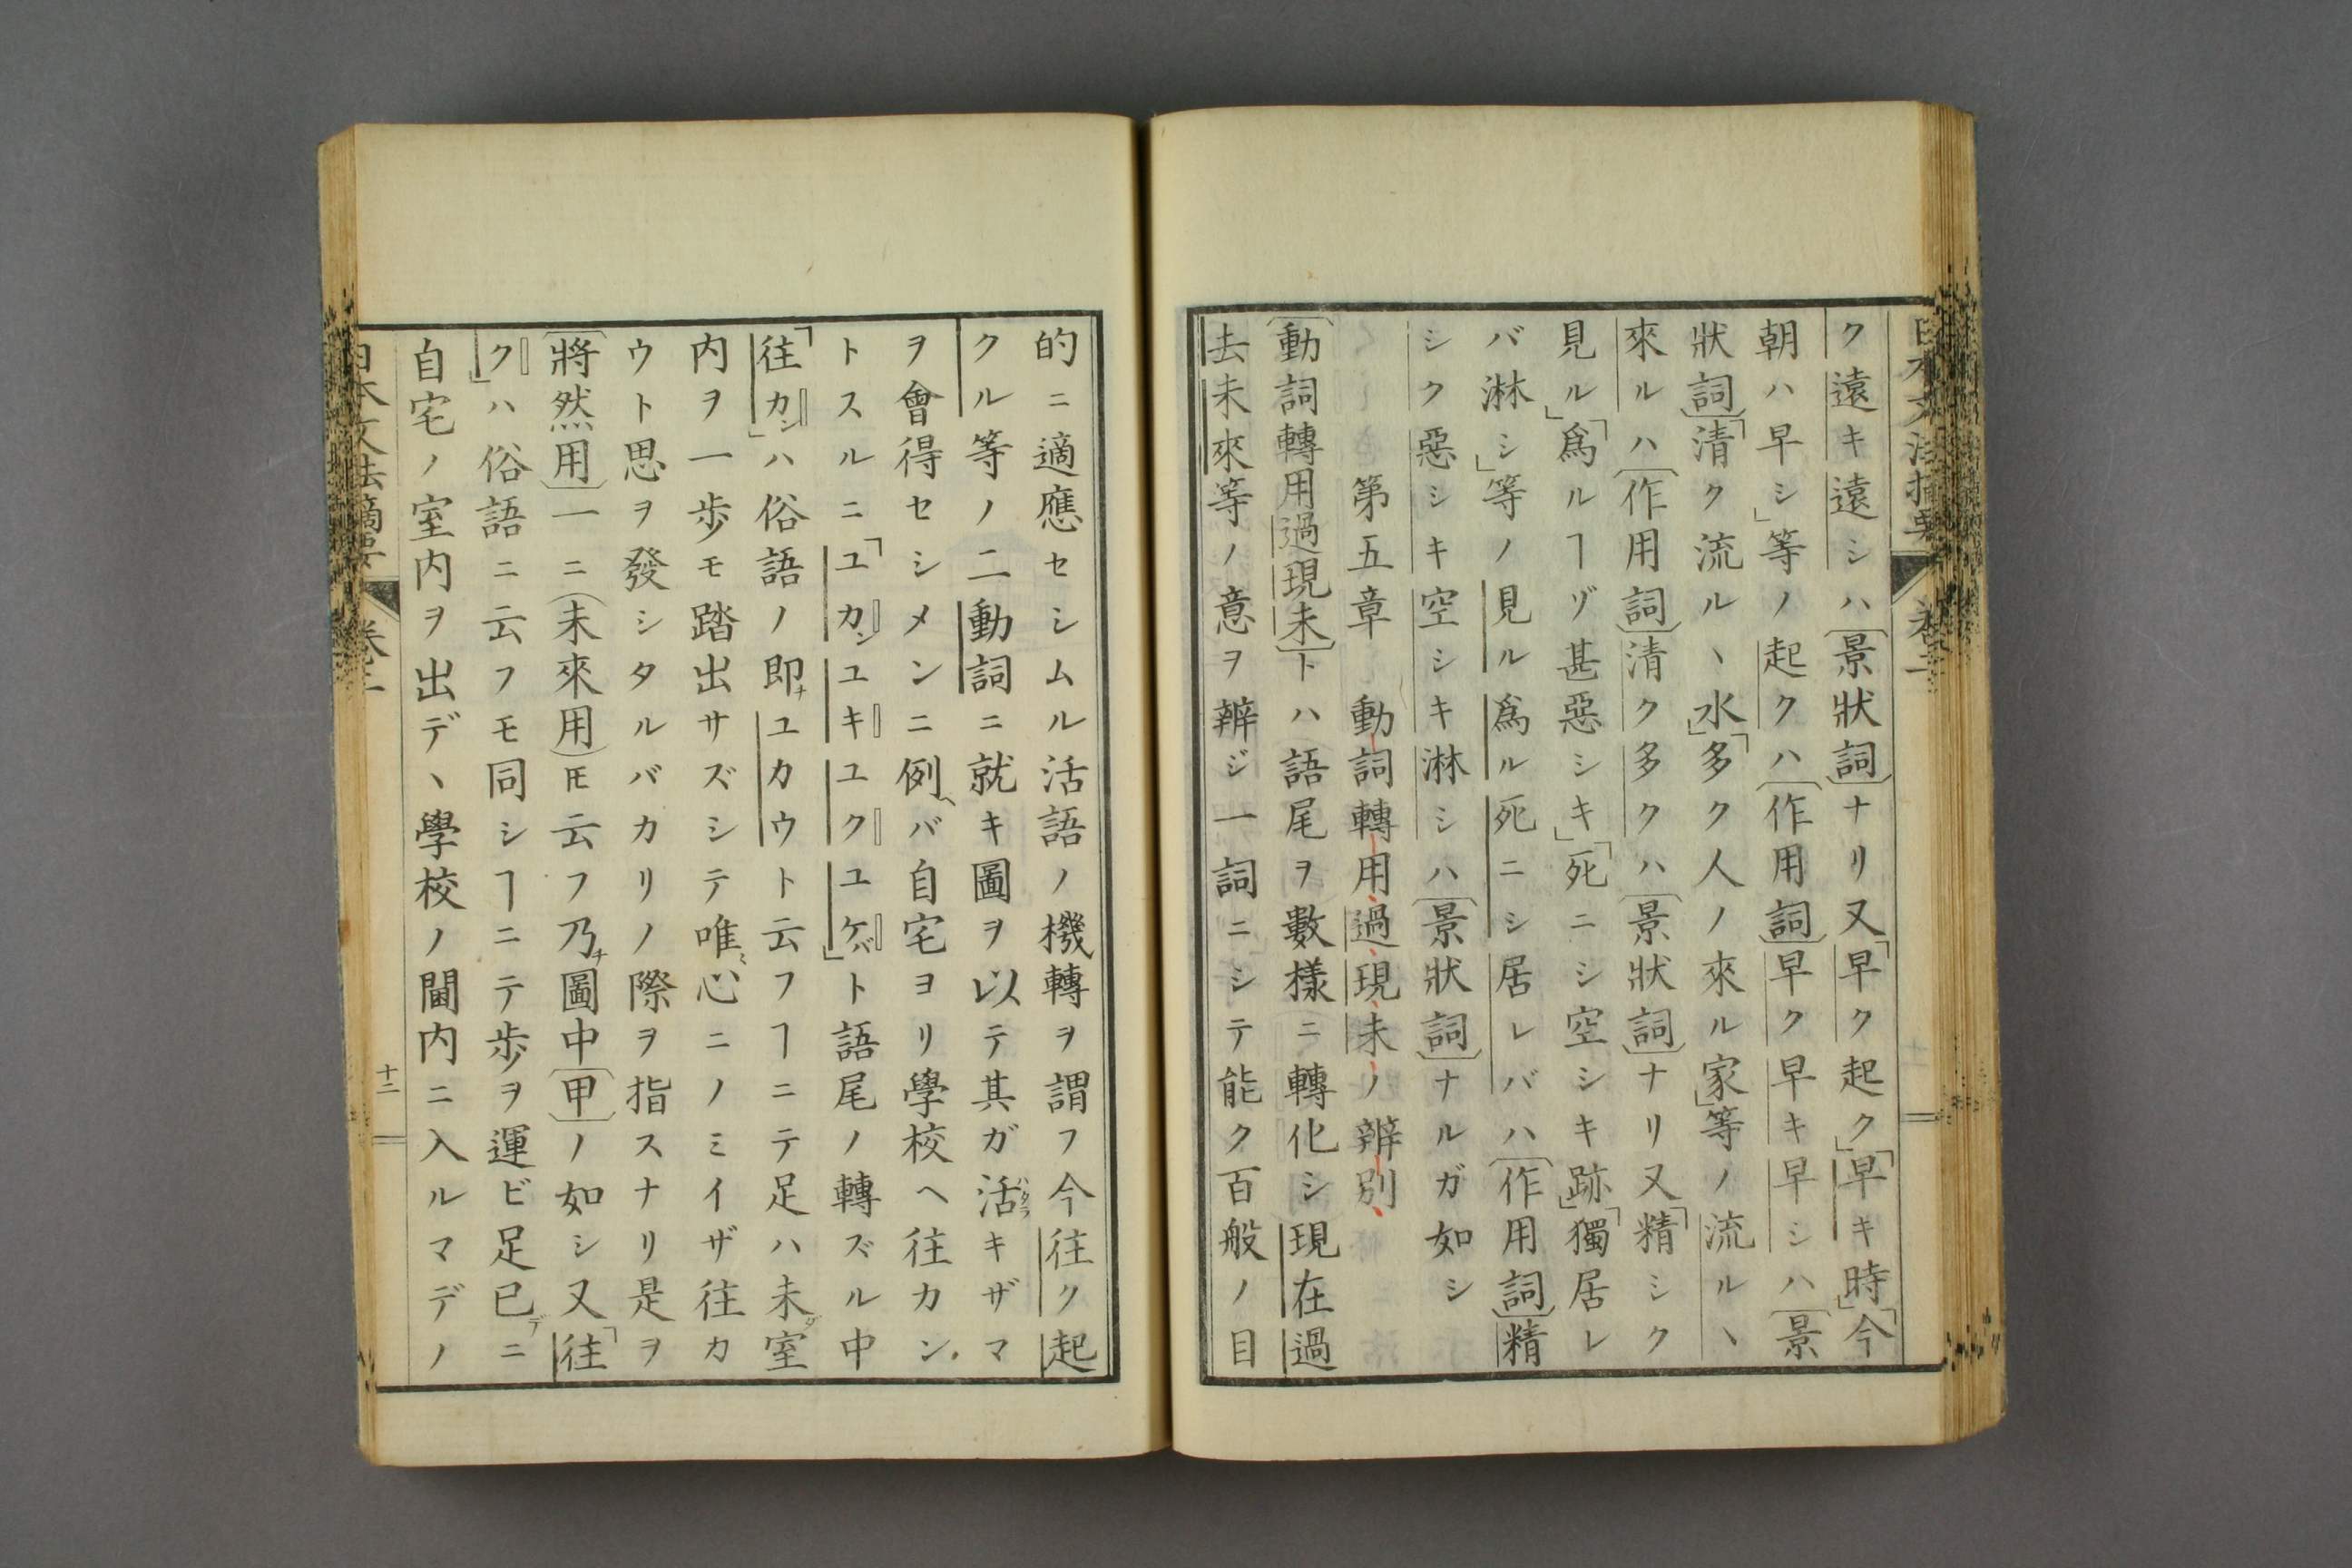 ク遠キ遠シハ〔景狀詞〕ナリ又「早ク起ク」「早キ時」「今
朝ハ早シ」等ノ起クハ〔作用詞〕早ク早キ早シハ〔景
狀詞〕「清ク流ルヽ水」「多ク人ノ來ル家」等ノ流ルヽ
來ルハ〔作用詞〕清ク多クハ〔景狀詞〕ナリ又「精シク
見ル」「爲ルヿゾ甚惡シキ」「死ニシ空シキ跡」「獨居レ
バ淋シ」等ノ見ル爲ル死ニシ居レバハ〔作用詞〕精
シク惡シキ空シキ淋シハ〔景狀詞〕ナルガ如シ
第五章　動詞轉用過現未ノ辨別
〔動詞轉用過現未〕トハ語尾ヲ數樣ニ轉化シ現在過
去未來等ノ意ヲ辨ジ一詞ニシテ能ク百般ノ目
的ニ適應セシムル活語ノ機轉ヲ謂フ今往ク起
クル等ノ二動詞ニ就キ圖ヲ以テ其ガ活キザマ
ヲ會得セシメンニ例ヘバ自宅ヨリ學校ヘ往カン
トスルニ「ユカンユキユクユケバ」ト語尾ノ轉ズル中
「往カン」ハ俗語ノ即ナユカウト云フヿニテ足ハ未ダ室
内ヲ一歩モ踏出サズシテ唯ミ心ニノミイザ往カ
ウト思ヲ發シタルバカリノ際ヲ指スナリ是ヲ
〔將然用〕一ニ(未來用)𪜈云フ乃ナ圖中〔甲〕ノ如シ又「往
ク」ハ俗語ニ云フモ同シヿニテ歩ヲ運ビ足已デニ
自宅ノ室内ヲ出デヽ學校ノ閫内ニ入ルマデノ
日本文法摘要
卷之二
十二